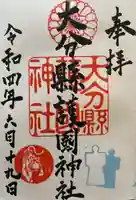 奉拝
大分縣護國神社
大分縣
神社
令和四年六月十九日